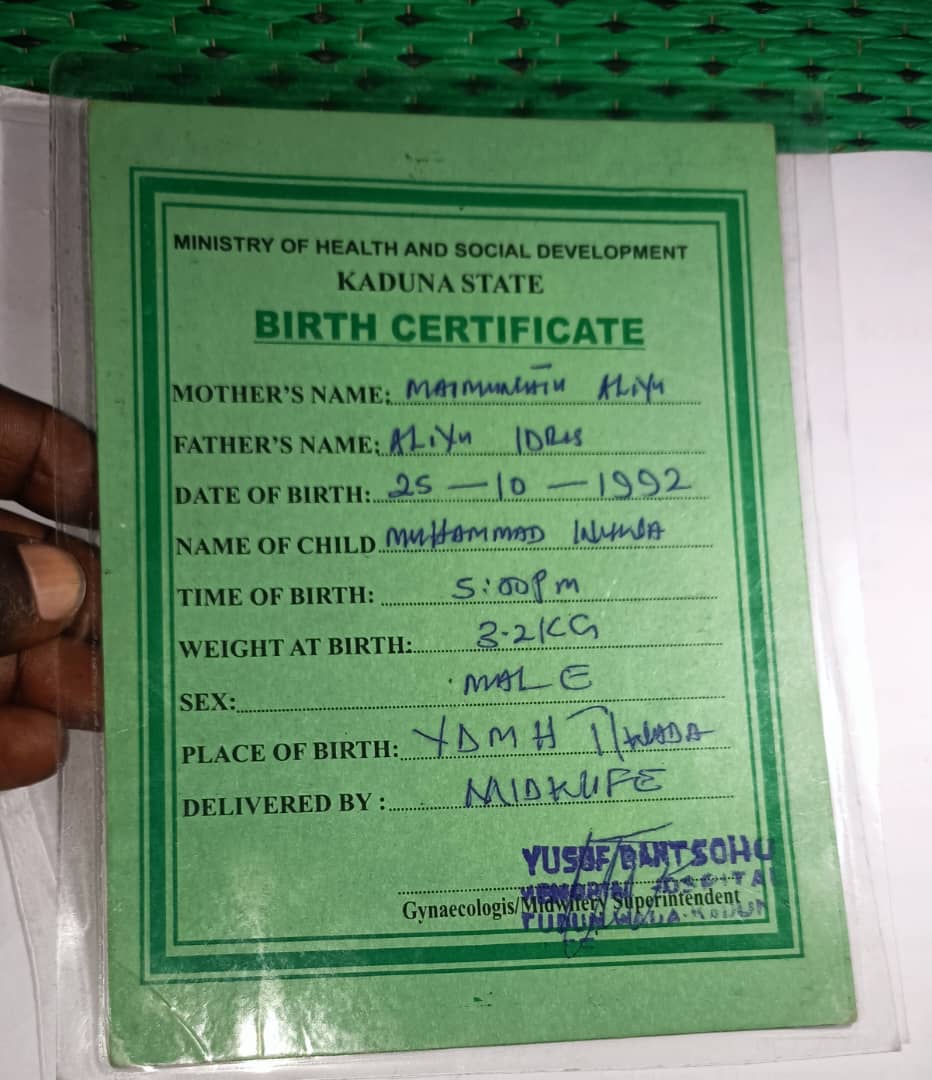 MINISTRY OF HEALTH AND SOCIAL DEVELOPMENT
KADUNA STATE
BIRTH CERTIFICATE
MOTHER'S NAME: ALIYU
FATHER'S NAME: ALIYU IDRIS
DATE OF BIRTH: 25-10-1992
NAME OF CHILD MUHAMMAD
TIME OF BIRTH: 5:00pm
WEIGHT AT BIRTH: 3.2KG
SEX: MALE
PLACE OF BIRTH: YDMH T/WADA
DELIVERED BY : MIDWIFE
YUSUF DANTSOHO
MEMORIAL HOSPITAL
Gynaecologis/Midwifery Superintendent
TUDUN WADA-KADUNA